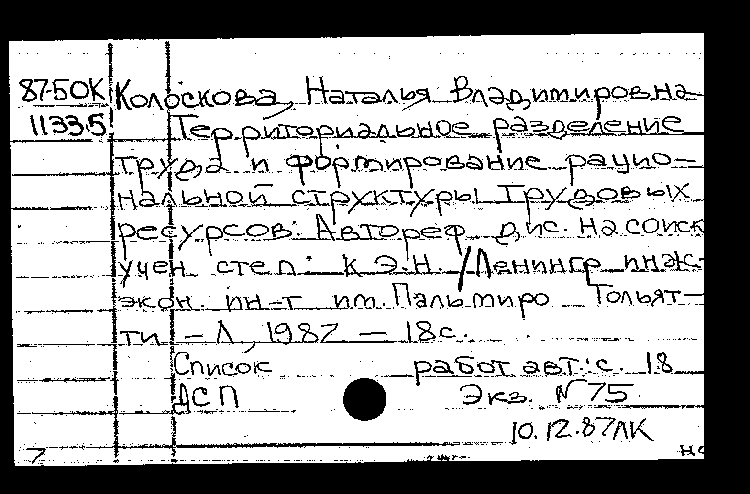 87-5ОК Колоскова, Наталья Владимировна
11335 Территориальное разделение
труда и формирование рацио-
нальной структуры трудовых
ресурсов: Автореф. дис. на соиск
учен. степ.: к.э.н. / Ленингр инж.-
экон. ин-т им. Пальмиро Тольят-
ти - Л, 1987 - 18с.
Список работ авт.: с. 18
ДСП Экз. N 75
10.12.87ЛК
7